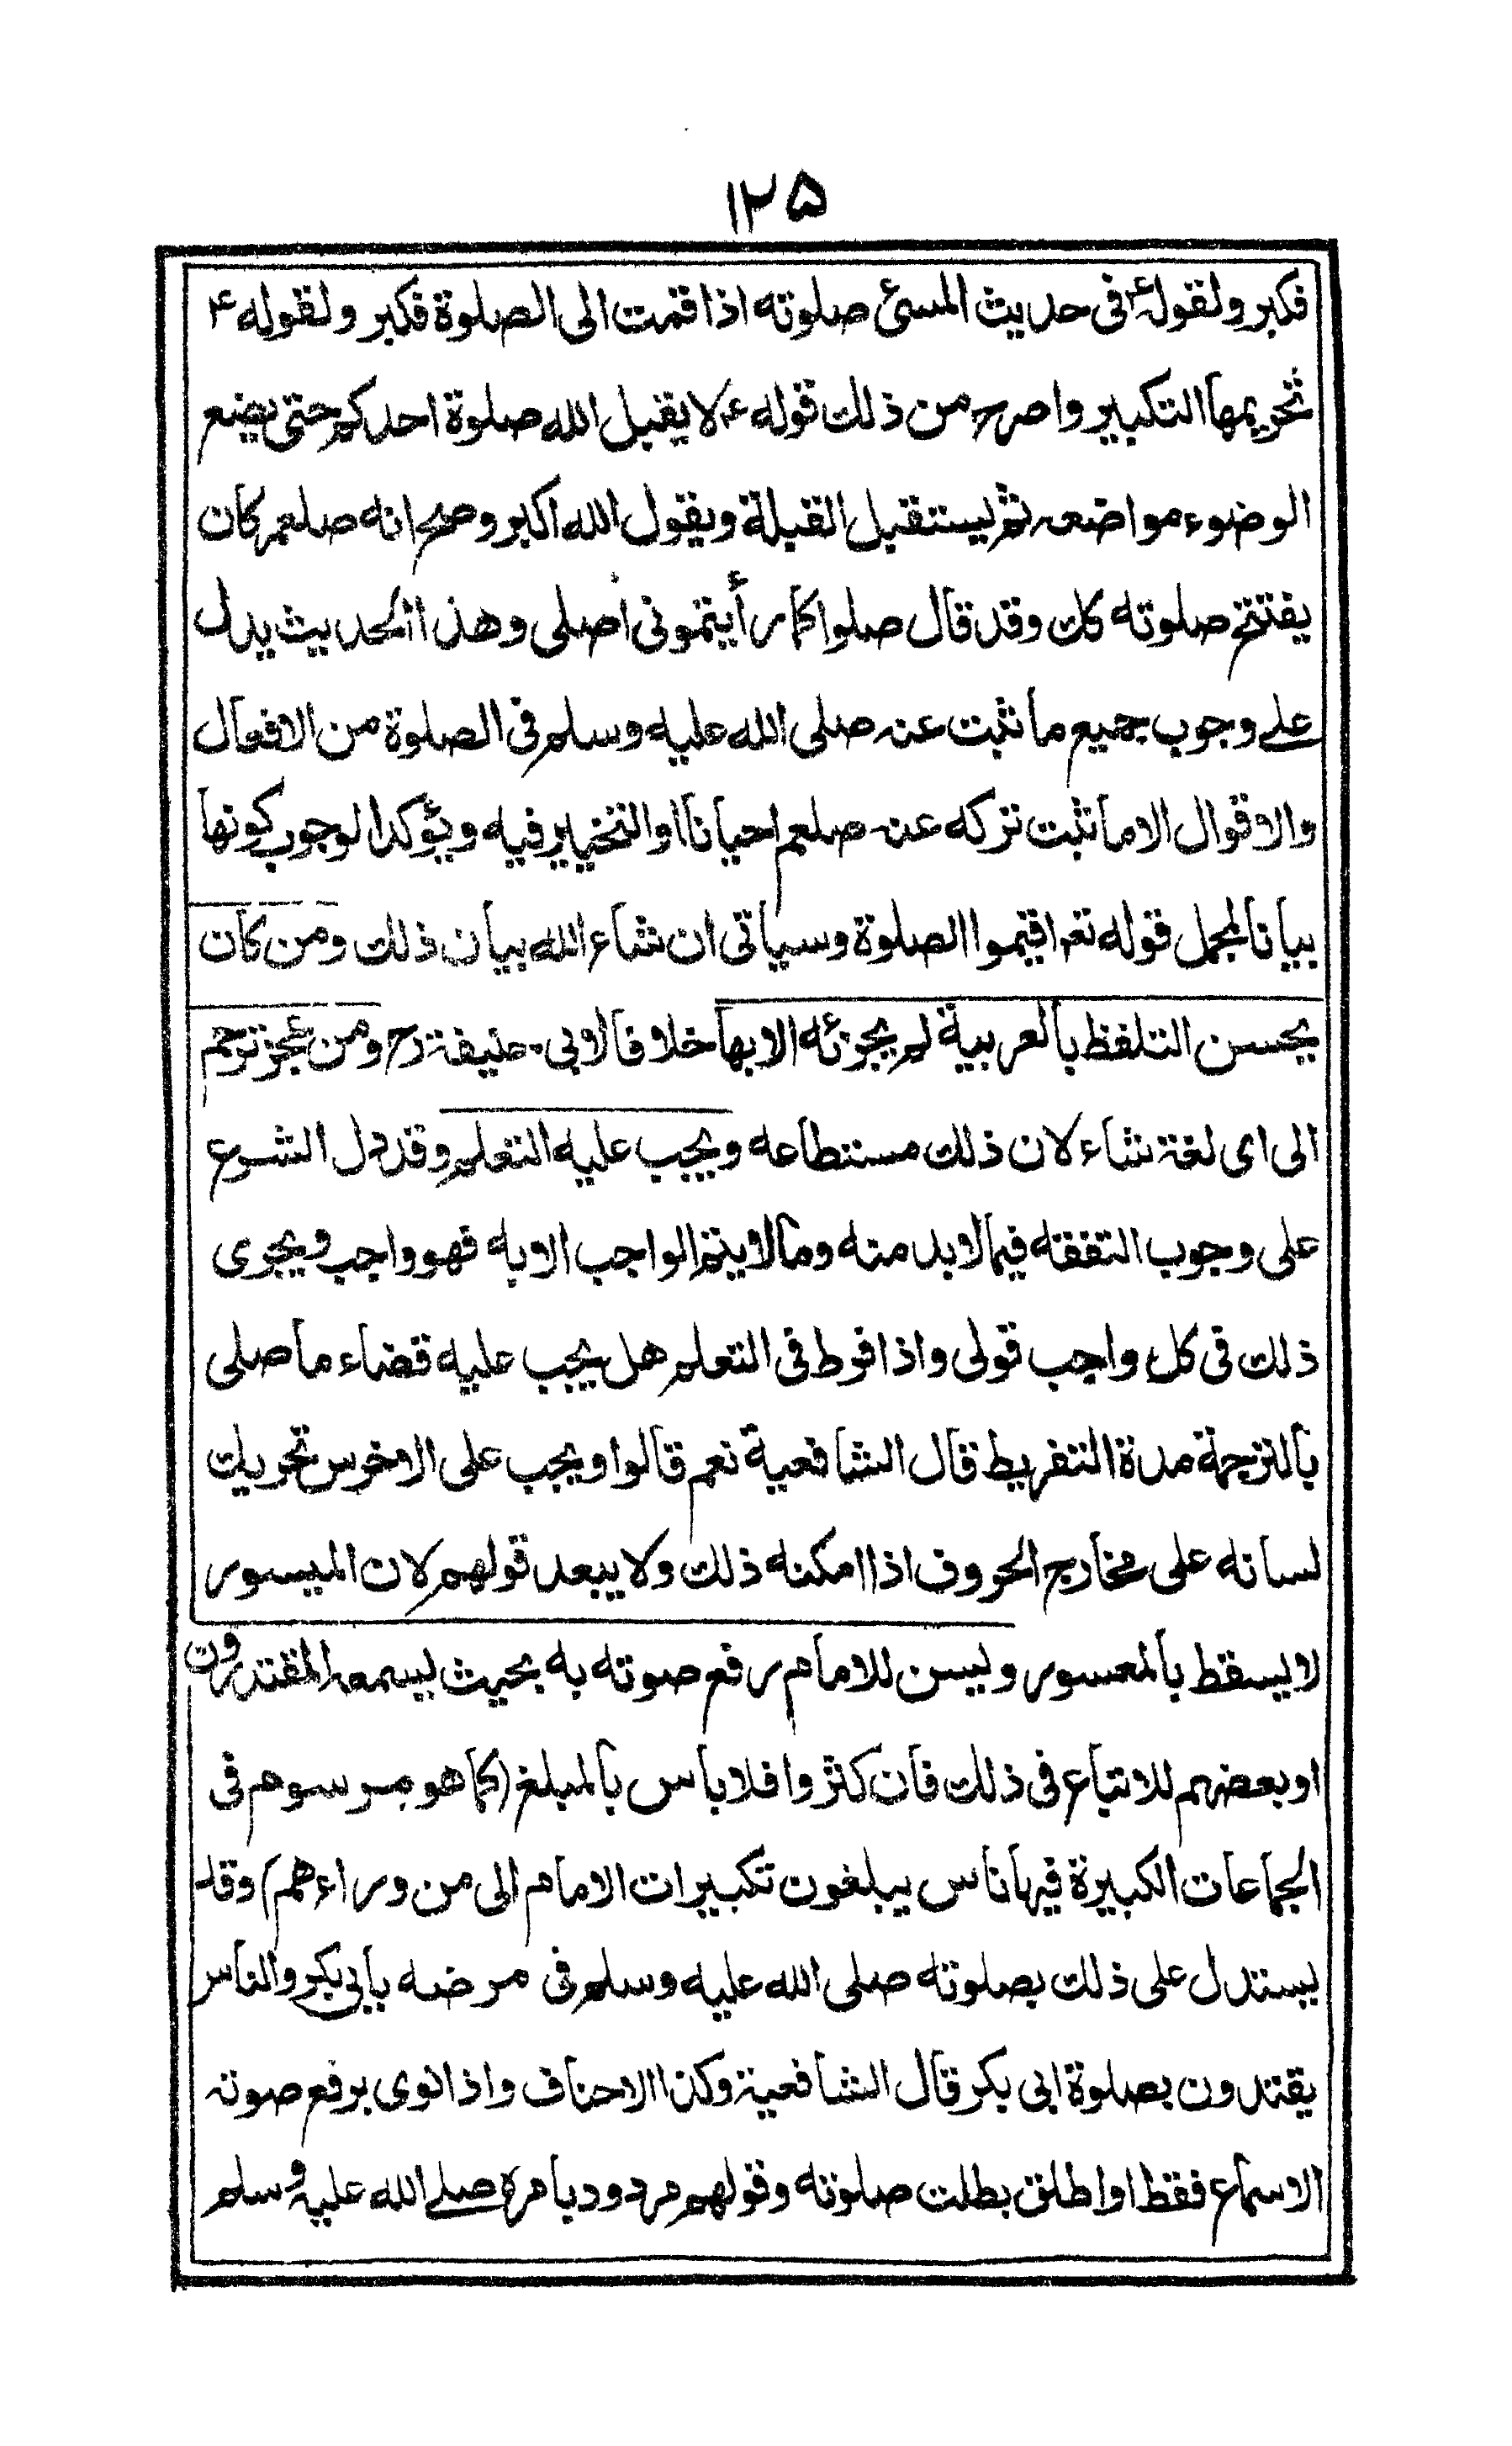 ١٢٥
فكبر ولقوله ؑ فى حديث المسئ صلوته اذا قمت الى الصلوة فكبر ولقوله ؑ
تحريمها التكبير واصرح من ذلك قوله ؑ لا يقبل الله صلوة احدكم حتى يضع
الوضوء مواضعه ثم يستقبل القبلة ويقول الله اكبر وصح انه صلعم كان
يفتتح صلوته كك وقد قال صلوا كما رأيتمونى اصلى وهذا الحديث يدل
على وجوب جميع ما ثبت عنه صلى الله عليه وسلم فى الصلوة من الافعال
والاقوال الا ما ثبت تركه عنه صلعم احيانا او التخيير فيه ويؤكد الوجوب كونها
بيانا لمجمل قوله تعم اقيموا الصلوة وسياتى ان شاء الله بيان ذلك ومن كان
يحسن التلفظ بالعربية لم يجزئه الا بها خلافا لابى حنيفة رح ومن عجز ترجم
الى اى لغة شاء لان ذلك مستطاعه ويجب عليه التعلم وقد دل الشرع
على وجوب التفقه فيما لابد منه وما لا يتم الواجب الا به فهو واجب ويجرى
ذلك فى كل واجب قولى واذا فرط فى التعلم هل يجب عليه قضاء ما صلى
بالترجمة مدة التفريط قال الشافعية نعم قالوا ويجب على الاخرس تحريك
لسانه على مخارج الحروف اذا امكنه ذلك ولا يبعد قولهم لان الميسور
لا يسقط بالمعسور وليسن للامام رفع صوته به بحيث يسمعه المقتدرون
او بعضهم للاتباع فى ذلك فان كثروا فلا باس بالمبلغ (كما هو مرسوم فى
الجماعات الكبيرة فيها ناس يبلغون تكبيرات الامام الى من وراءهم) وقد
يستدل على ذلك بصلوته صلى الله عليه وسلم فى مرضه بابى بكر والناس
يقتدون بصلوة ابى بكر قال الشافعية وكذا الاحناف واذا نوى برفع صوته
الاسماع فقط او اطلق بطلت صلوته وقولهم مردود بامره صلى الله عليه وسلم